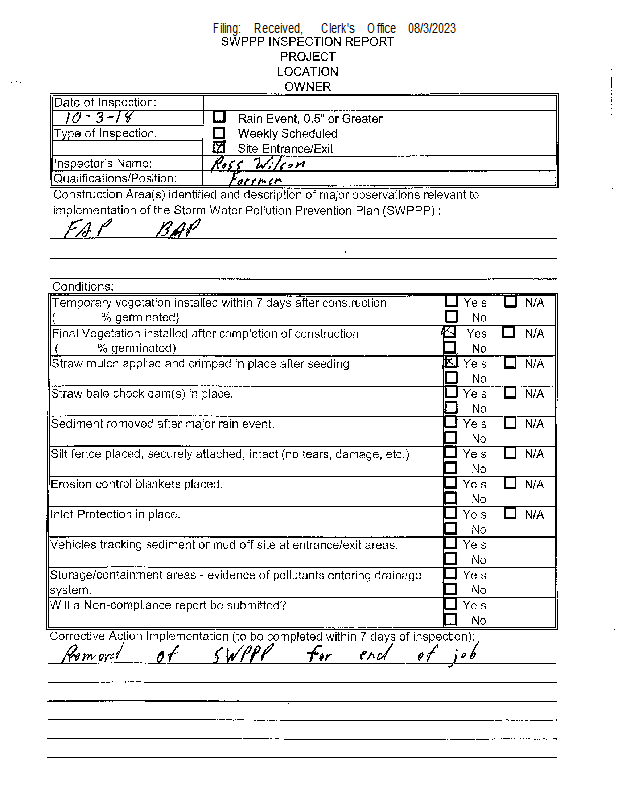 Filing: Received, Clerk's Office 08/3/2023
SWPPP INSPECTION REPORT
PROJECT
LOCATION
OWNER
Date of Inspection:
10-3-18
Rain Event, 0.5" or Greater
Type of Inspection:
Weekly Scheduled
Site Entrance/Exit
Inspector's Name: Ross Wilson
Qualifications/Position: Foreman
Construction Area(s) identified and description of major observations relevant to
implementation of the Storm Water Pollution Prevention Plan (SWPPP) :
FAP BAP
Conditions:
Temporary vegetation installed within 7 days after construction Yes N/A
( % germinated) No
Final Vegetation installed after completion of construction Yes N/A
( % germinated) No
Straw mulch applied and crimped in place after seeding Yes N/A
No
Straw bale check dam(s) in place. Yes N/A
No
Sediment removed after major rain event. Yes N/A
No
Silt fence placed, securely attached, intact (no tears, damage, etc.) Yes N/A
No
Erosion control blankets placed. Yes N/A
No
Inlet Protection in place. Yes N/A
No
Vehicles tracking sediment or mud off site at entrance/exit areas. Yes
No
Storage/containment areas - evidence of pollutants entering drainage Yes
system. No
Will a Non-compliance report be submitted? Yes
No
Corrective Action Implementation (to be completed within 7 days of inspection):
Removal of SWPPP for end of job